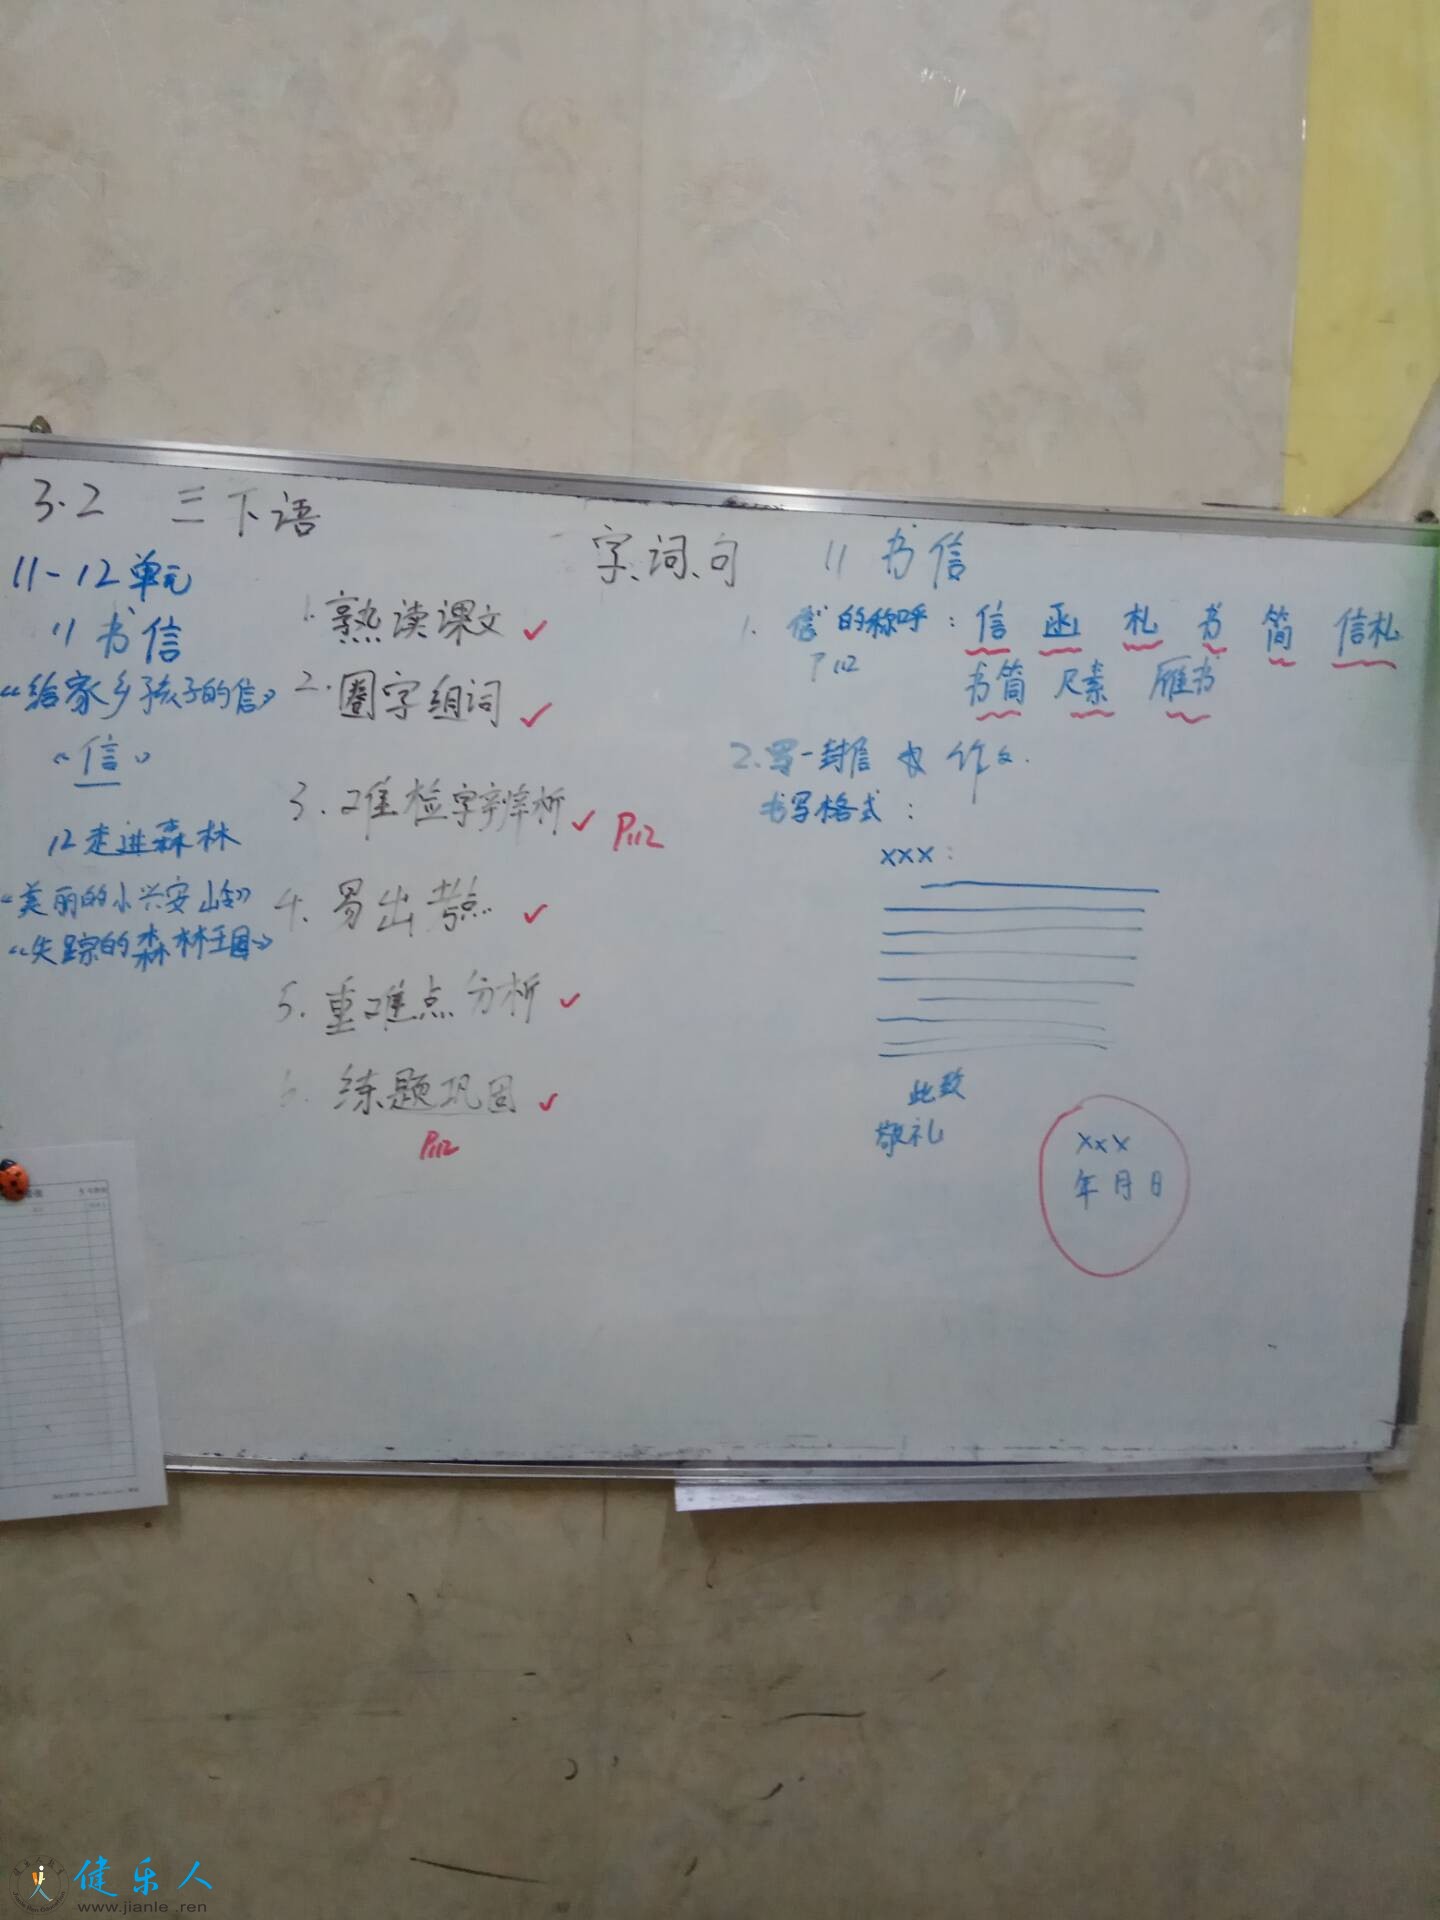 3.2 三下语
11-12单元
11 书信
《给家乡孩子的信》
《信》
12走进森林
《美丽的小兴安岭》
《失踪的森林王国》
字、词、句
1. 熟读课文 ✓
2. 圈字组词 ✓
3. 难检字辨析 ✓ P112
4. 易出考点. ✓
5. 重难点分析 ✓
6. 练题巩固 ✓
P112
11 书信
1. 信的称呼: 信 函 札 书 简 信札
P112 书简 尺素 雁书
2. 写一封信 作文.
书写格式:
xxx:
此致
敬礼
xxx
年月日
健乐人
www.jianle.ren